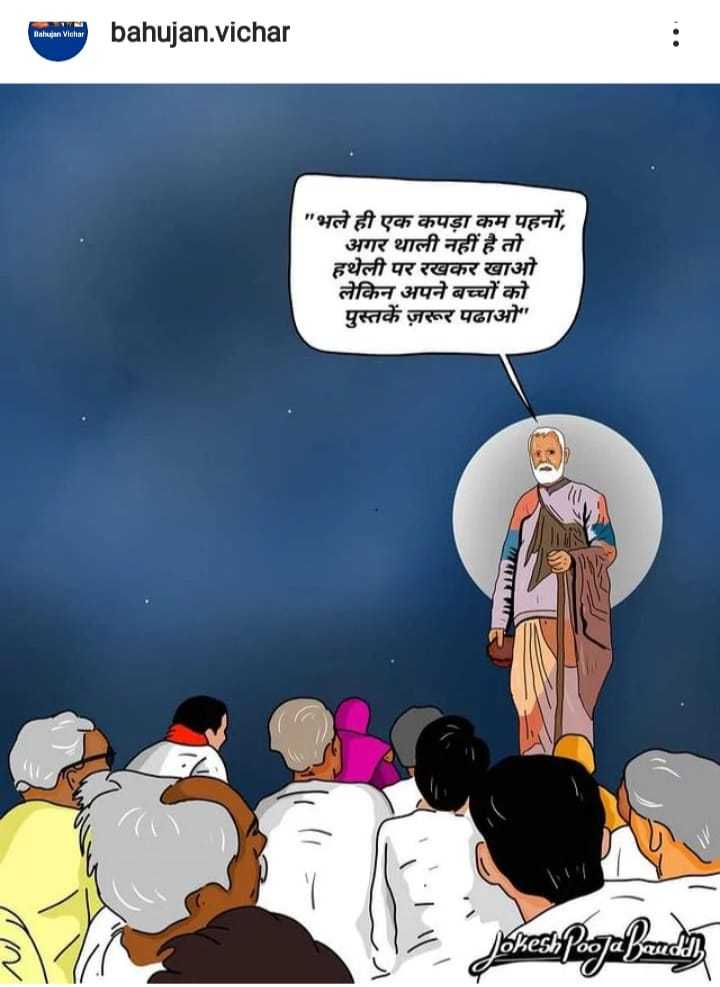 Bahujan Vichar
bahujan.vichar
"भले ही एक कपड़ा कम पहनों,
अगर थाली नहीं है तो
हथेली पर रखकर खाओ
लेकिन अपने बच्चों को
पुस्तकें ज़रूर पढाओ"
Lokesh Pooja Bauddh